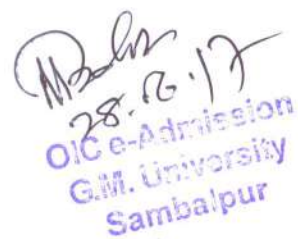 28.12.17
OIC e-Admission
G.M. University
Sambalpur